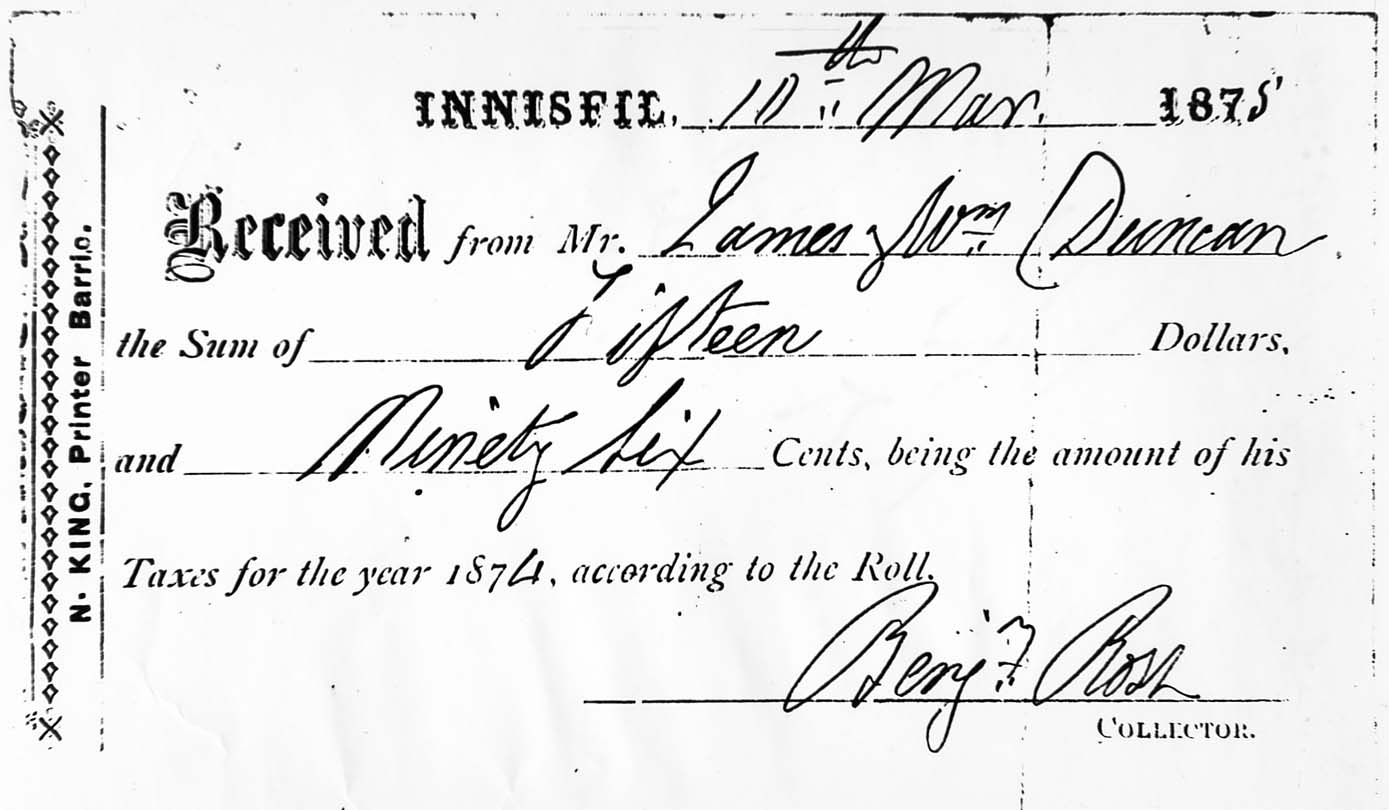 INNISFIL, 10th Mar. 1875
Received from Mr. James & Wm Duncan
the Sum of Fifteen Dollars,
and Ninety Six Cents, being the amount of his
Taxes for the year 1874, according to the Roll.
Benj. F Ross
COLLECTOR.
N. KING, Printer Barrie.